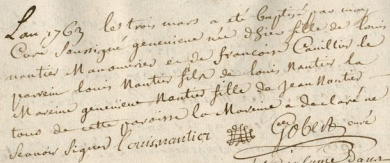 L'an 1763 les trois mars a été baptisé par moy
Curé Soussigné genevieve née d'hier fille de louis
nantier Manouvrier et de françoise Cuvillier le
parrein louis Nantier fils de louis Nantier la
Mareine genevieve Nantier fille de jean Nantier
tous de cette paroisse la Mareine a declaré ne
Scavoir Signer louis nantier Gobert curé